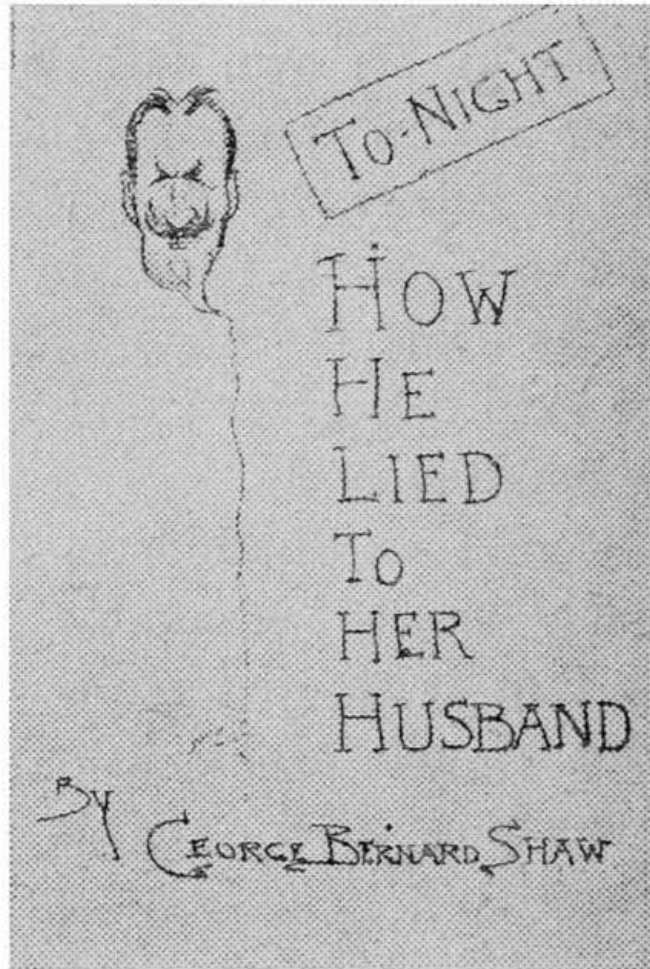 To-Night
How
He
Lied
To
Her
Husband
By
George Bernard Shaw